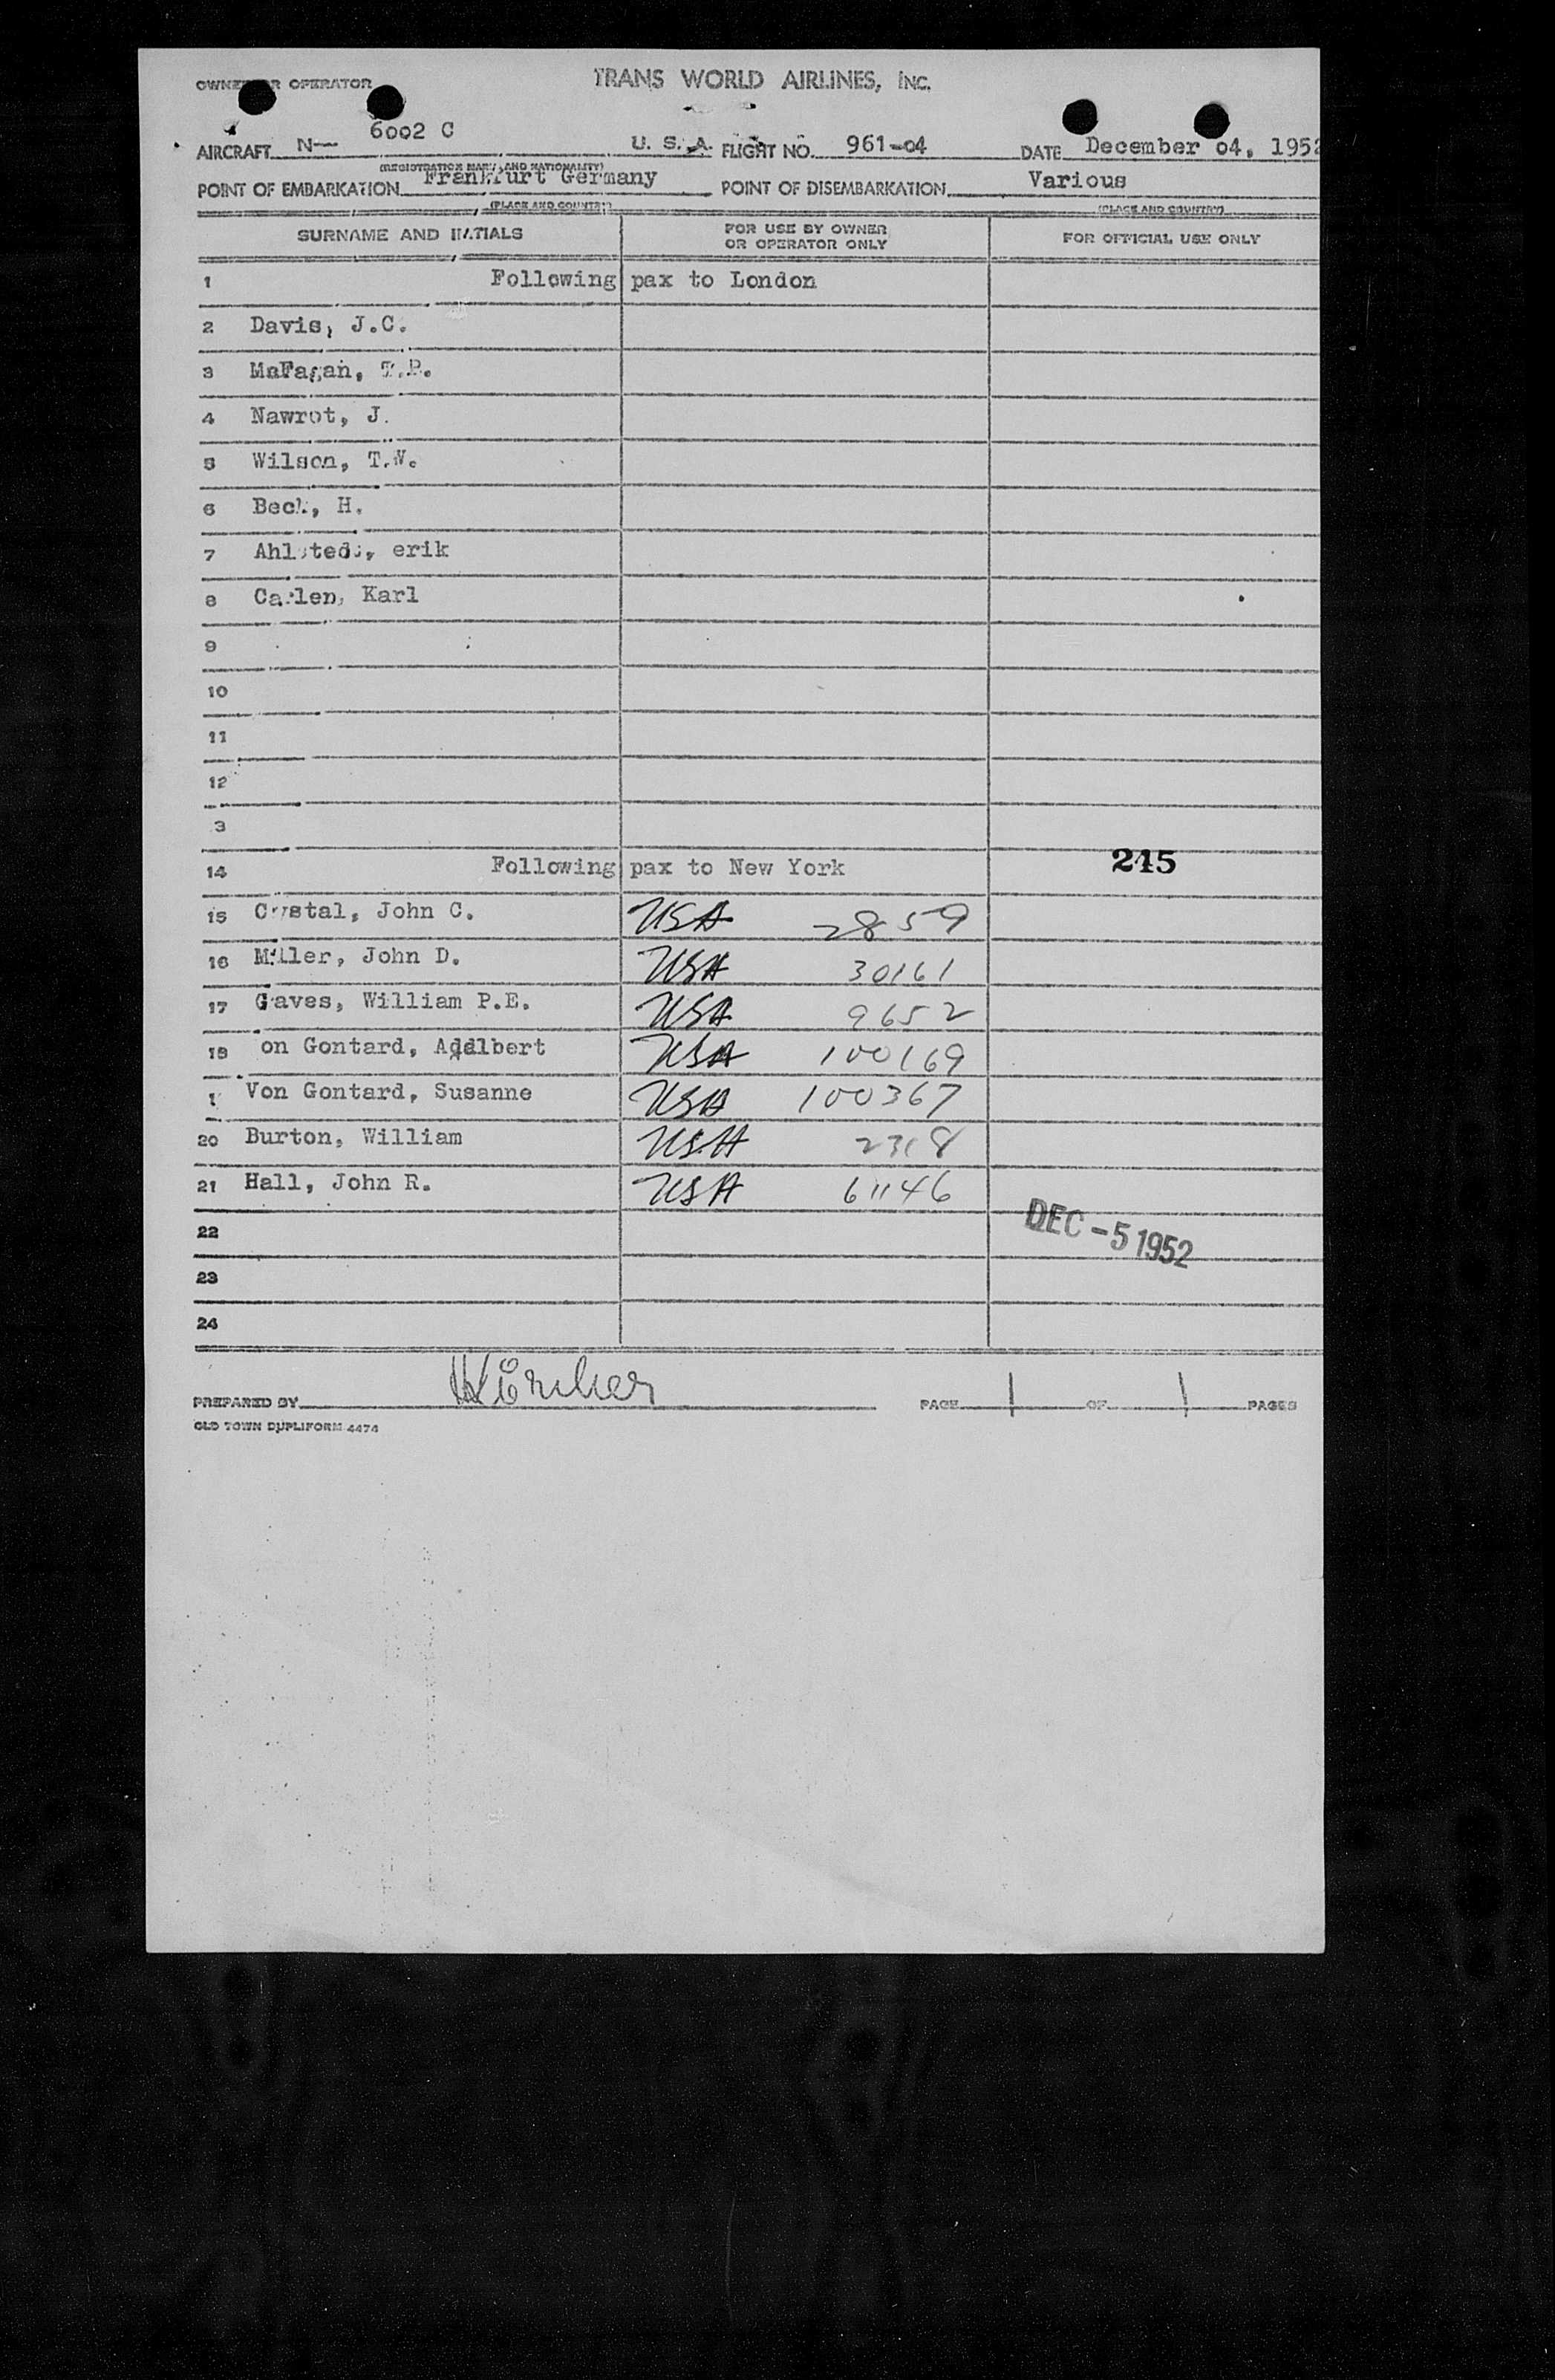 TRANS WORLD AIRLINES, INC.
OWNER OR OPERATOR
AIRCRAFT N- 6002 C U. S. A. FLIGHT NO. 961-04 DATE December 04, 1952
(REGISTRATION MARK AND NATIONALITY)
POINT OF EMBARKATION Frankfurt Germany POINT OF DISEMBARKATION Various
(PLACE AND COUNTRY) (PLACE AND COUNTRY)
SURNAME AND INITIALS FOR USE BY OWNER OR OPERATOR ONLY FOR OFFICIAL USE ONLY
1 Following pax to London
2 Davis, J.C.
3 MaFagan,
4 Nawrot, J.
5 Wilson, T.W.
6 Beck, H.
7 Ahlstedt, erik
8 Karl
9
10
11
12
3
14 Following pax to New York 245
15 Crystal, John C. USA 2859
16 Miller, John D. USA 30161
17 Graves, William P.E. USA 9652
18 on Gontard, Adalbert USA 100169
1 Von Gontard, Susanne USA 100367
20 Burton, William USA 2318
21 Hall, John R. USA 61146
22 DEC -5 1952
23
24
PREPARED BY PAGE 1 OF 1 PAGES
OLD TOWN DUPLIFORM 4474